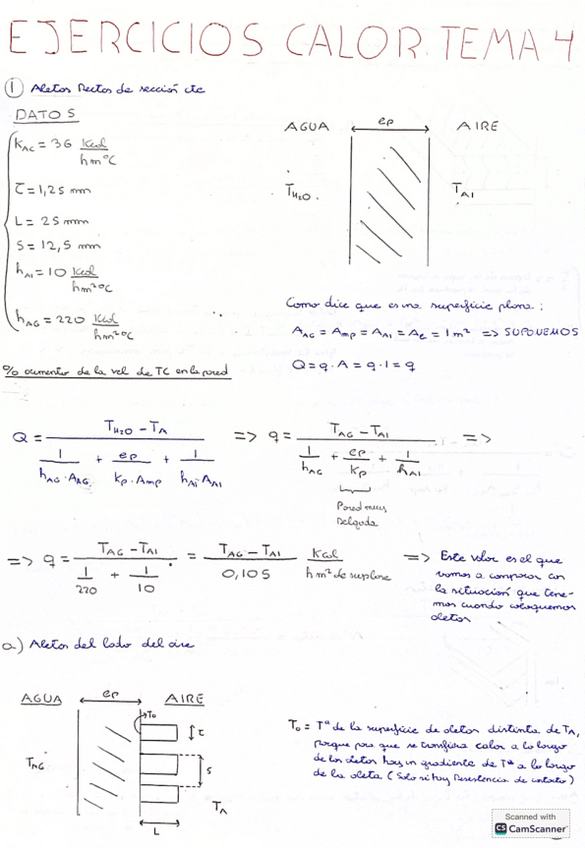 EJERCICIOS CALOR. TEMA 4
① Aletas Rectas de sección cte
DATOS
K_AC = 36 Kcal/hm°C
τ = 1,25 mm
L = 25 mm
S = 12,5 mm
h_AI = 10 Kcal/hm²°C
h_AG = 220 Kcal/hm²°C
AGUA ep AIRE
T_H2O T_AI
Como dice que es una superficie plana:
A_AG = A_mp = A_AI = A_e = 1 m² => SUPONEMOS
Q = q · A = q · 1 = q
% aumento de la vel de TC en la pared
Q = (T_H2O - T_A) / (1/(h_AG·A_AG) + ep/(Kp·Amp) + 1/(h_Ai·A_AI)) => q = (T_AG - T_AI) / (1/h_AG + ep/Kp + 1/h_AI) =>
Pared muy
Delgada
=> q = (T_AG - T_AI) / (1/220 + 1/10) = (T_AG - T_AI) / 0,105 Kcal/h m² de suplore => Este valor es el que
vamos a comparar con
la situación que tene-
mos cuando coloquemos
aletas
a) Aletas del lado del aire
AGUA ep AIRE
T_AG To τ S L T_A
To = Tª de la superficie de aletas distinta de T_A,
porque para que se transfiera calor a lo largo
de las aletas hay un gradiente de Tª a lo largo
de la aleta (Solo si hay Resistencia de contacto)
Scanned with
CS CamScanner